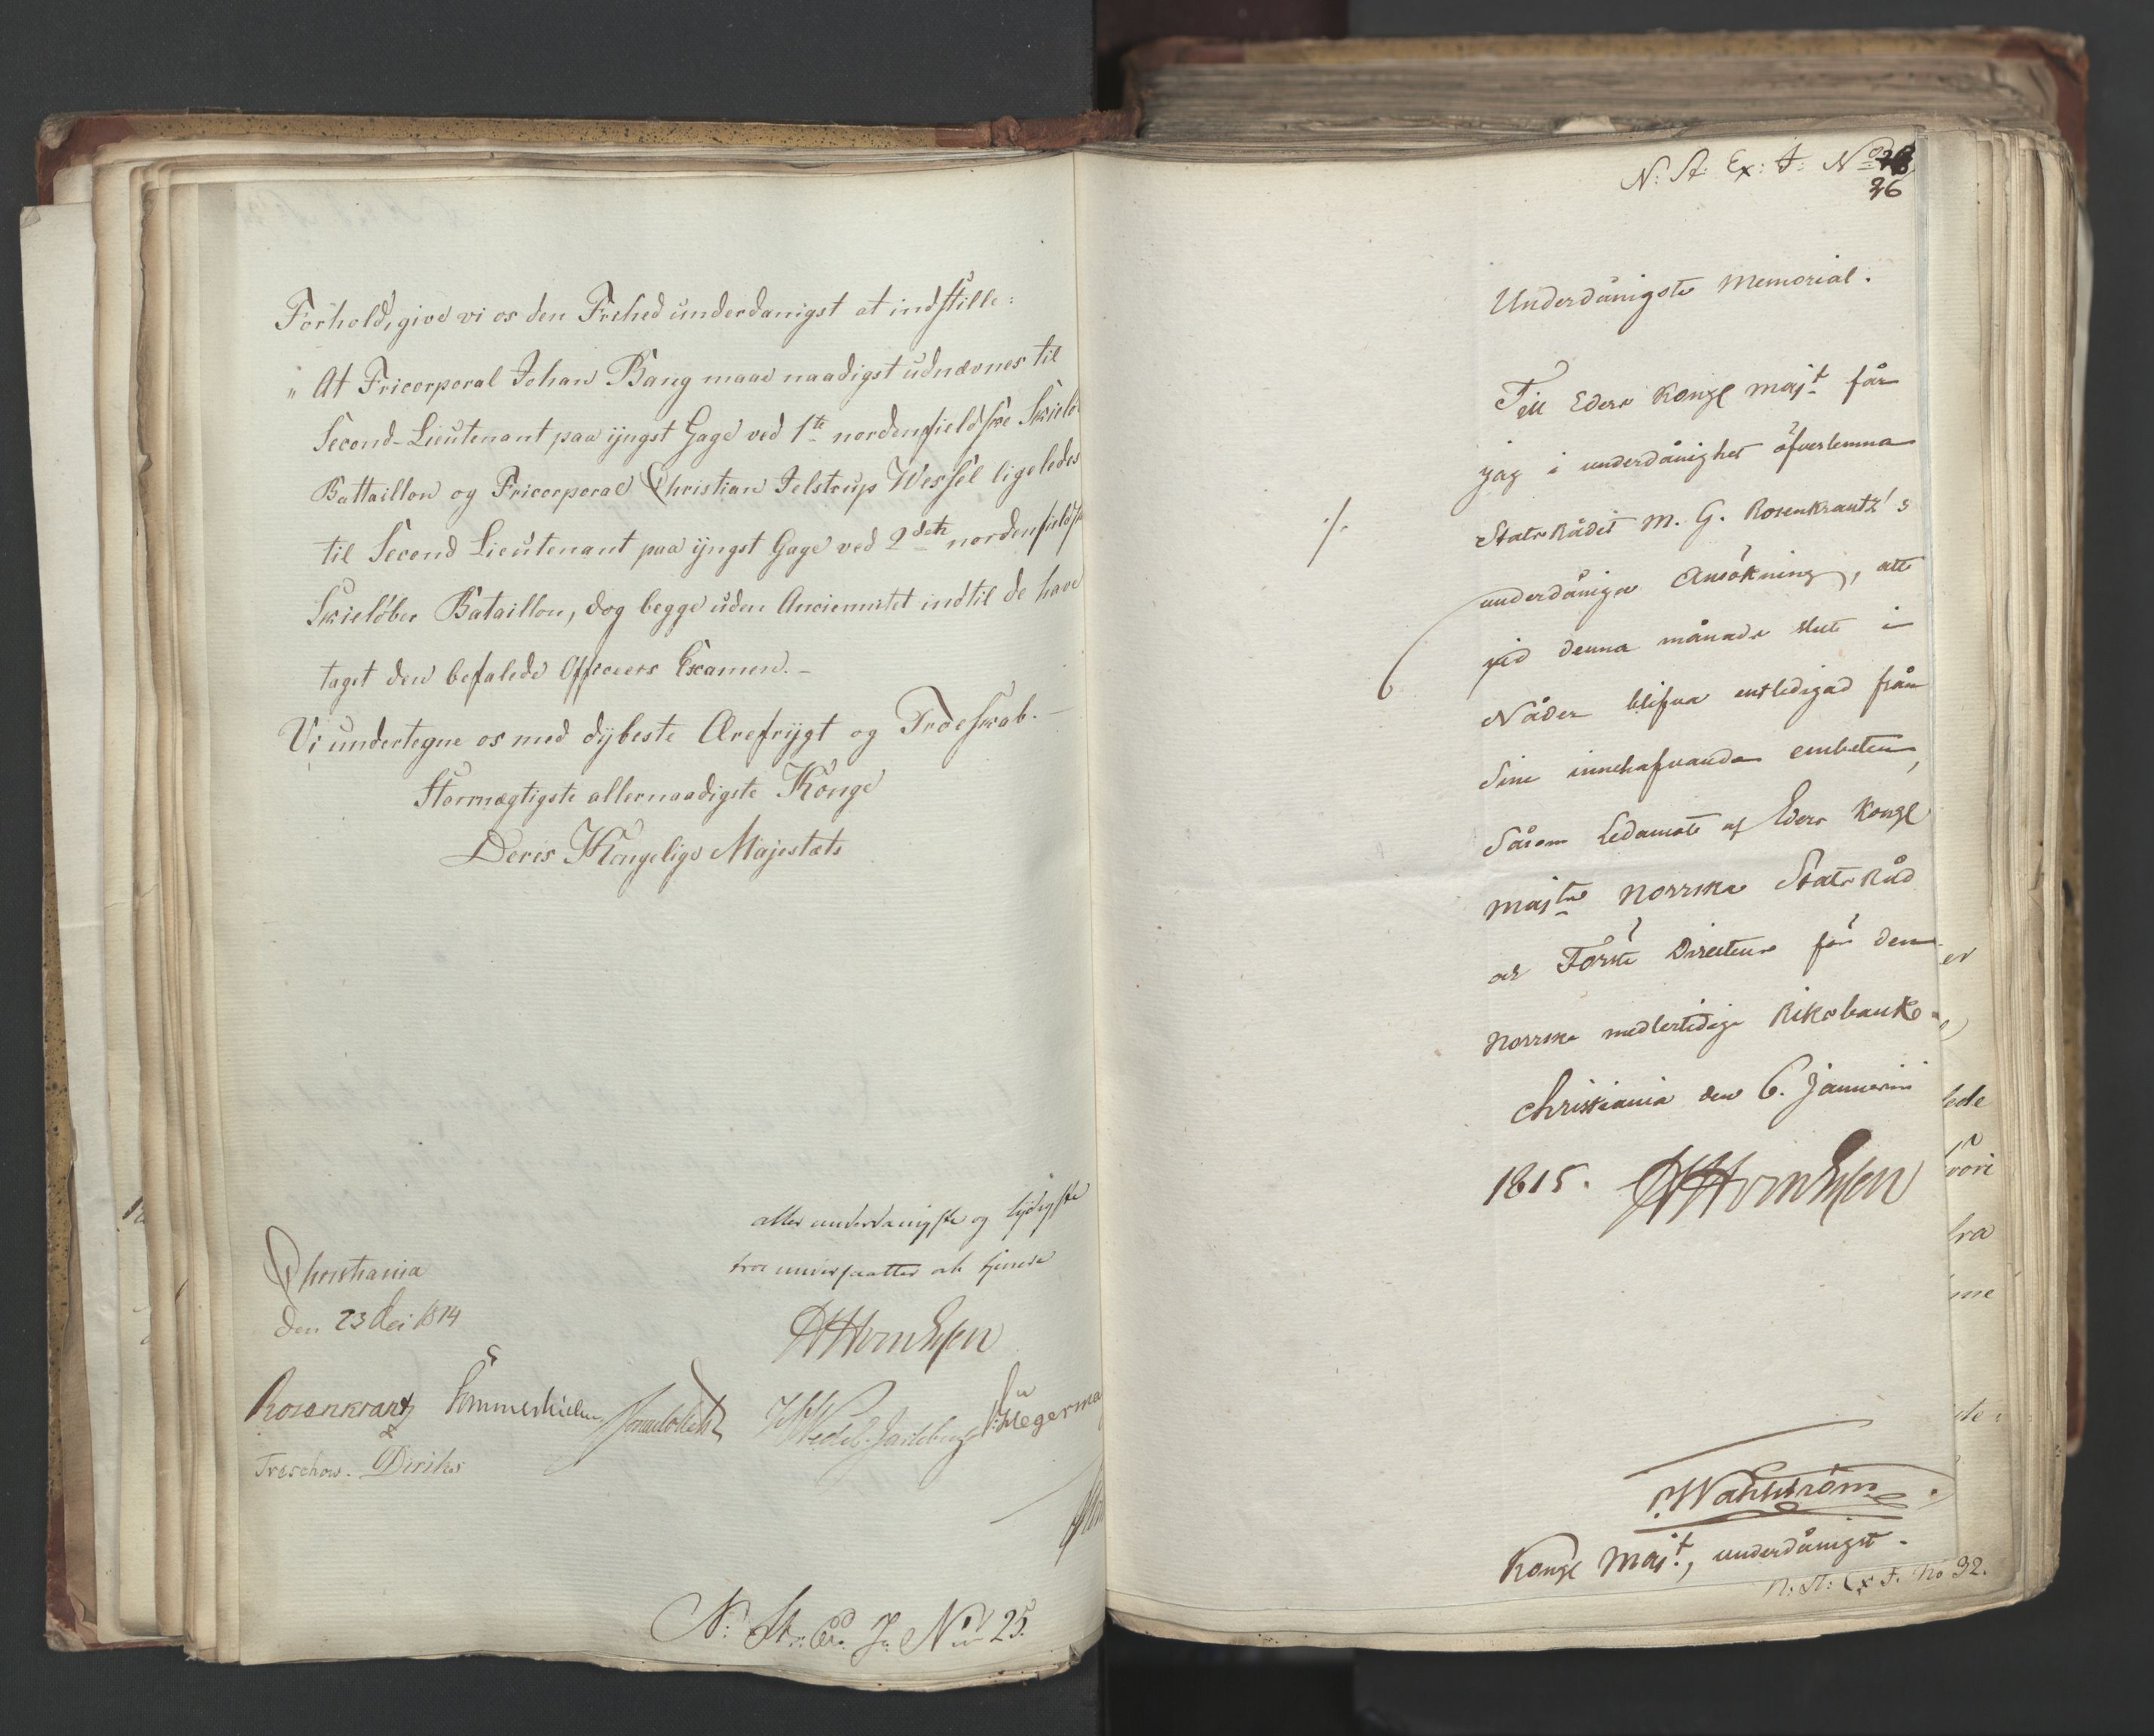 Forhold, give vi os den Frihed underdanigst at indstille:
" At Fricorporal Johan Bang maae naadigst udnævnes til
Second-Lieutenant paa yngst Gage ved 1te nordenfieldske Skielø
Battaillon og Fricorporal Christian Jelstrup Wessel ligeledes
til Second Lieutenant paa yngst Gage ved 2den nordenfieldsk
Skieløber Bataillon, dog begge uden Anciennitet indtil de have
taget den befalede Officeers Examen. -
Vi undertegne os med dybeste Ærefrygt og Troeskab. -
Stormægtigste allernaadigste Konge
Deres Kongelige Majestæts
aller underdanigste og lydigste
troe undersaatter och tjenere
Christiania
den 23 1814
Rosenkrantz Sommerhielm Wedel-Jarlsberg Hegerma
Treschow. Diriks
N: St: Ex: J: No 25.
N: St: Ex: J: No
26
Underdånigste Memorial.
Till Eders Kongl Majt får
jag i underdånighet öfverlemna
./.
StatsRådet M. G. Rosenkrantz's
underdåniga Ansökning, att
vid denna månads slut i
Nåder blifva entledigad från
Sine innehafvande embeten,
Såsom Ledamot af Eders Kongl
Majts Norrska StatsRåd
och Förste Directeur för den
Norrska medlertidige Riksbanken
Christiania den 6. Januarii
1815.
Wahlström.
Kongl Majt, underdånigst.
N: St: Ex J. No 32.
er
lede
vori
fra